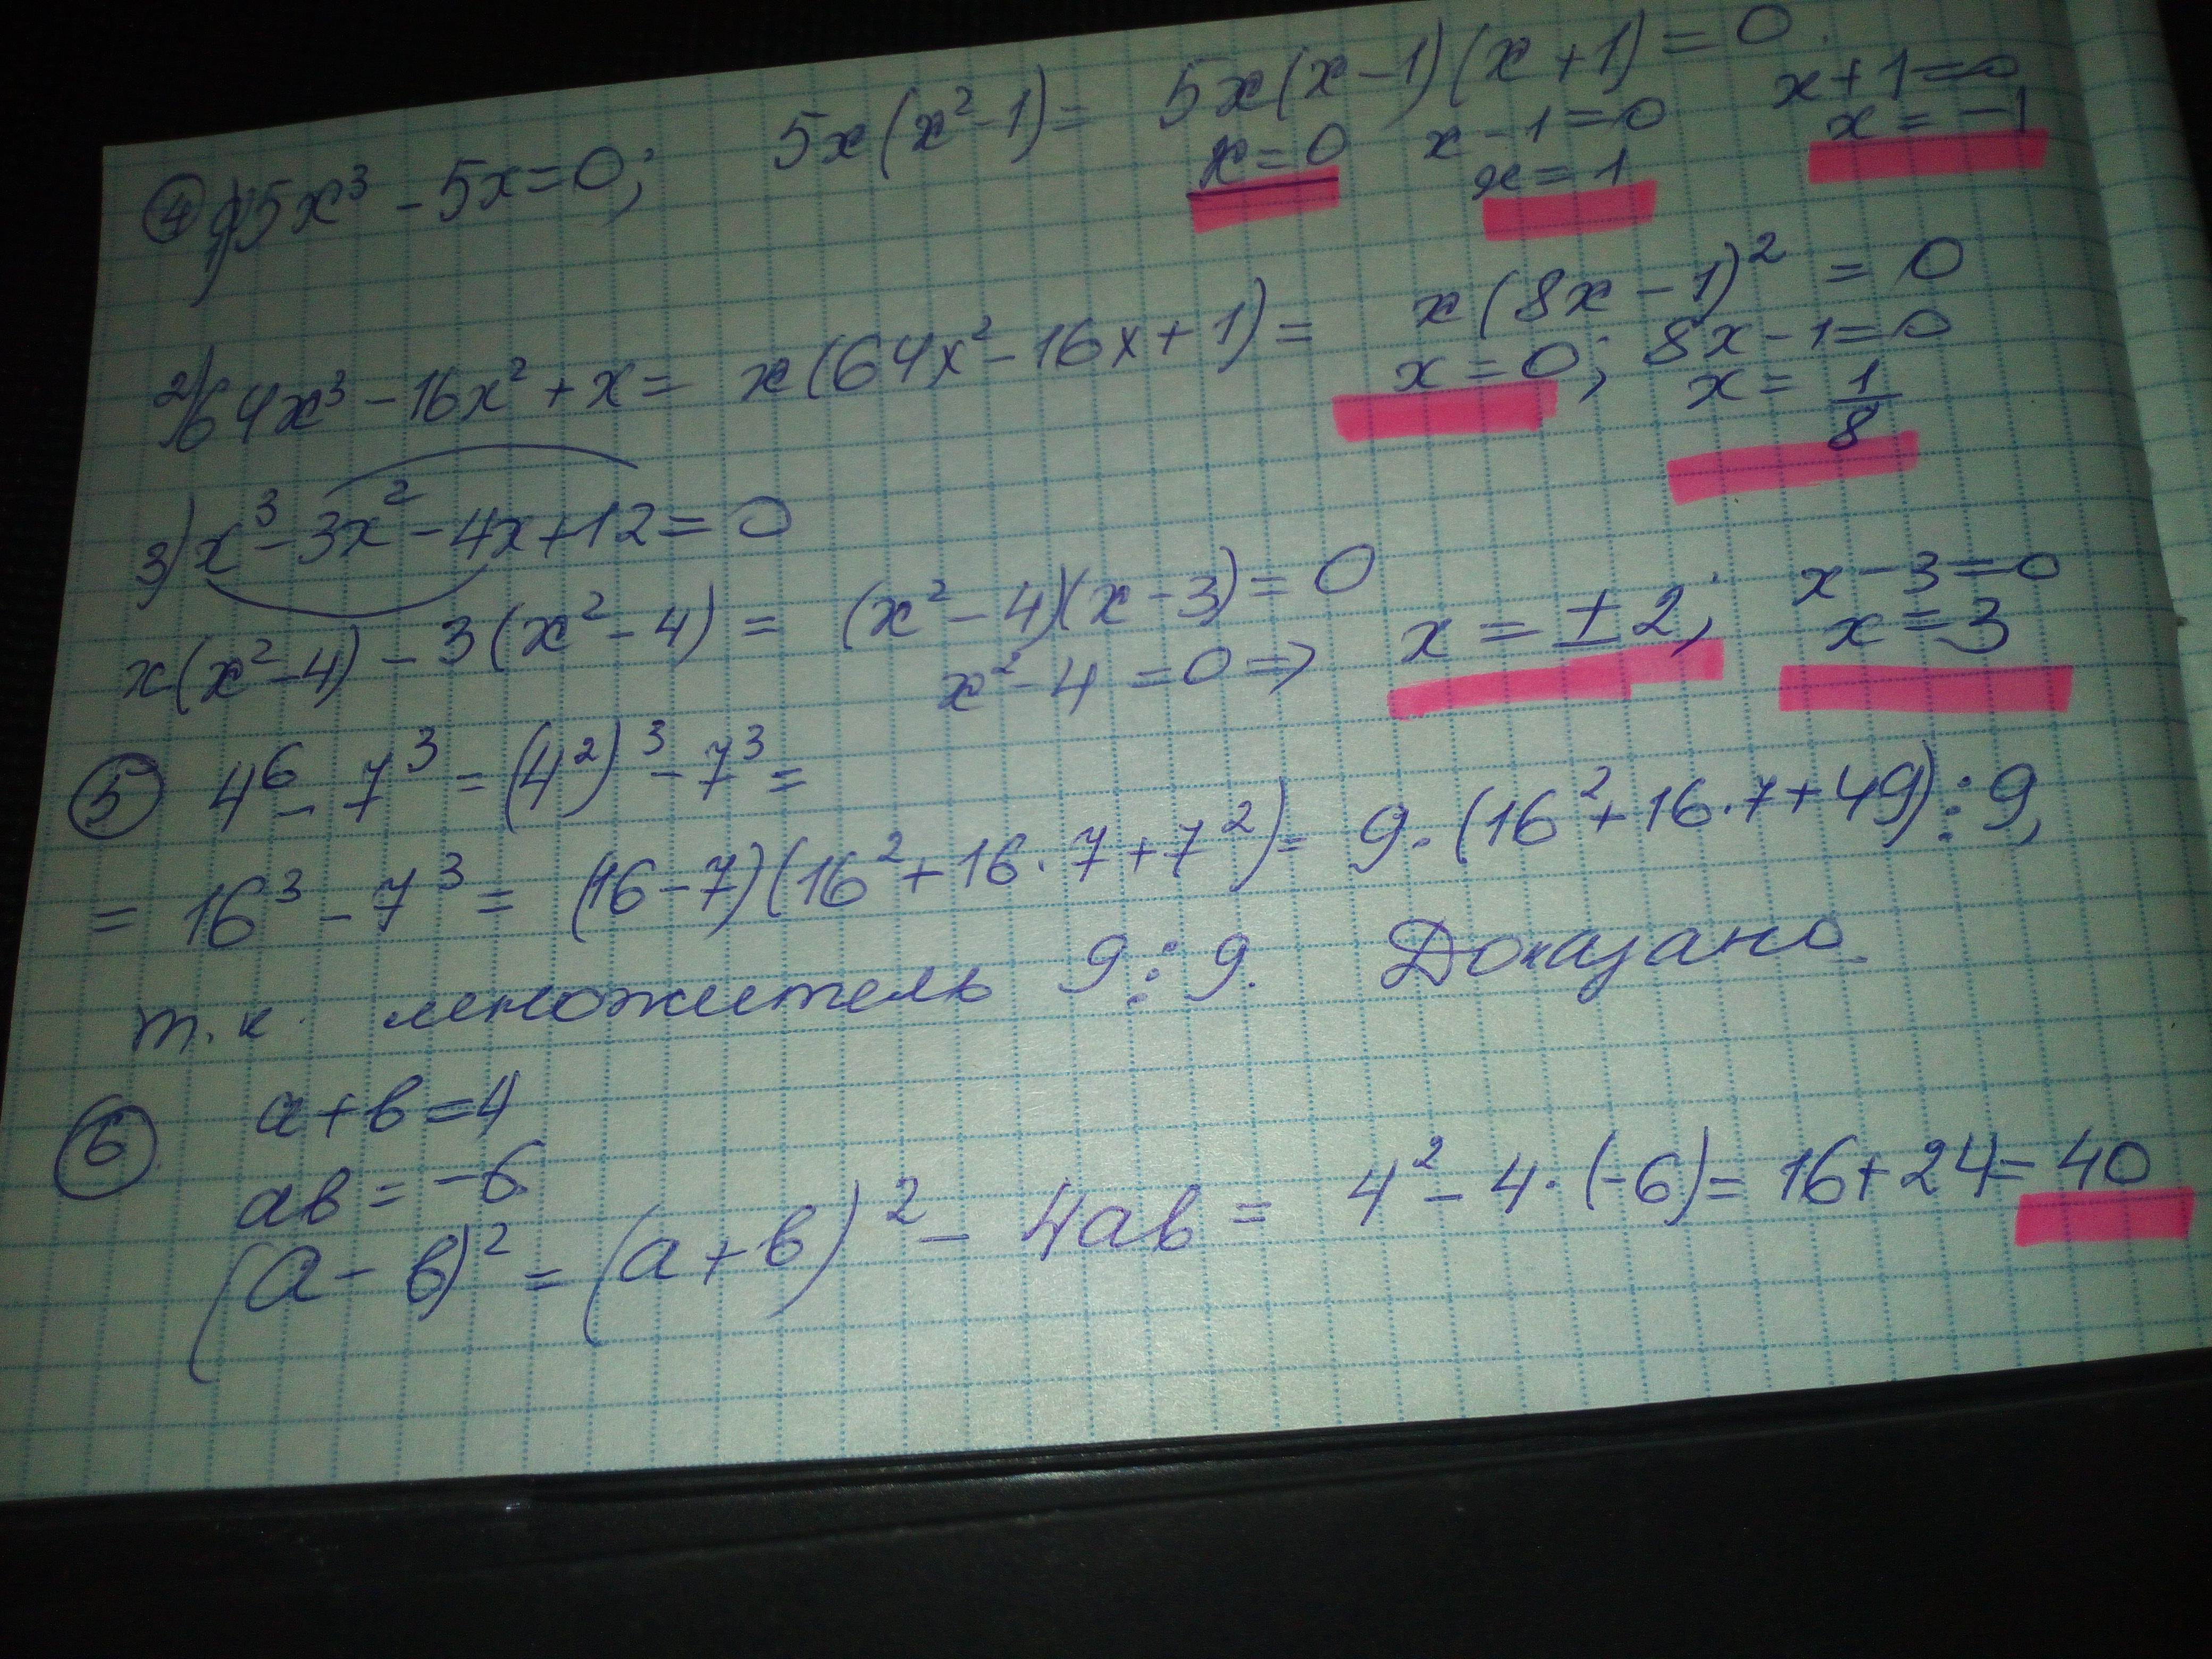 ④ 1) 5x³ - 5x = 0; 5x(x² - 1) = 5x(x - 1)(x + 1) = 0.
x = 0 x - 1 = 0 x + 1 = 0
x = 1 x = -1
2) 64x³ - 16x² + x = x(64x² - 16x + 1) = x(8x - 1)² = 0
x = 0; 8x - 1 = 0
x = 1/8
3) x³ - 3x² - 4x + 12 = 0
x(x² - 4) - 3(x² - 4) = (x² - 4)(x - 3) = 0
x² - 4 = 0 => x = ± 2; x - 3 = 0
x = 3
⑤ 4⁶ - 7³ = (4²)³ - 7³ =
= 16³ - 7³ = (16 - 7)(16² + 16 · 7 + 7²) = 9 · (16² + 16 · 7 + 49) ⋮ 9,
т.к. множитель 9 ⋮ 9. Доказано.
⑥ a + b = 4
ab = -6
(a - b)² = (a + b)² - 4ab = 4² - 4 · (-6) = 16 + 24 = 40